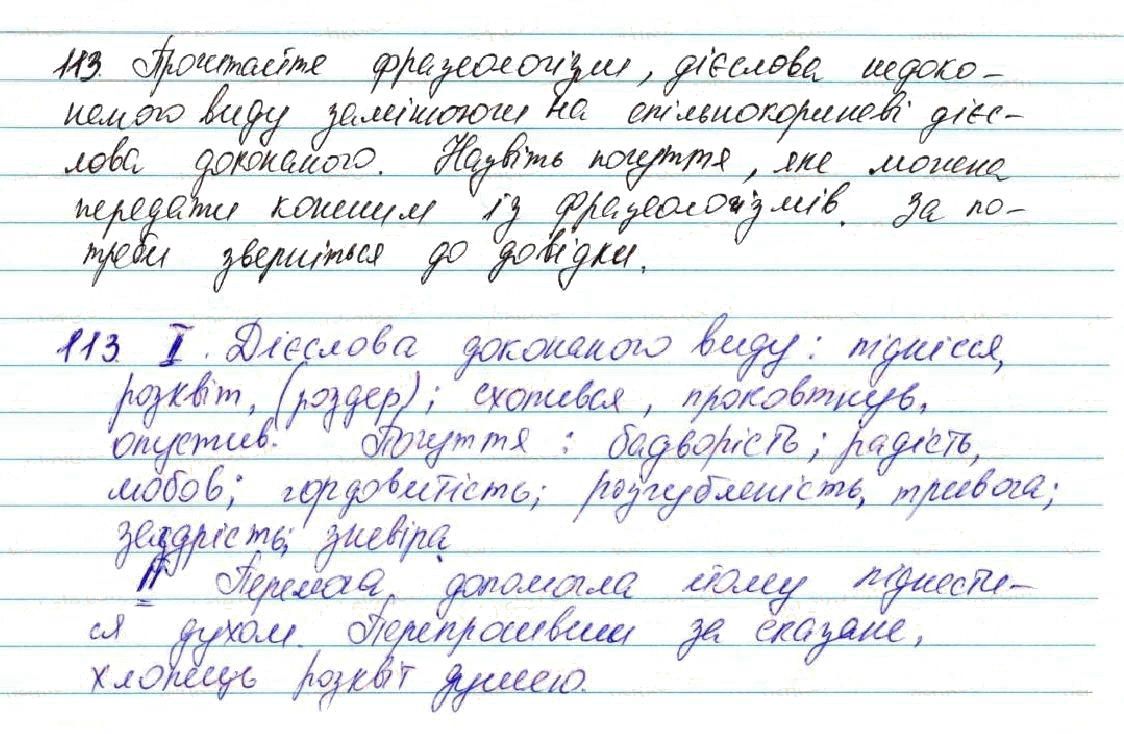 113. Прочитайте фразеологізми, дієслова недоко-
наного виду замінюючи на спільнокореневі дієс-
лова доконаного. Назвіть почуття, яке можна
передати кожним із фразеологізмів. За по-
треби зверніться до довідки.
113. I. Дієслова доконаного виду: піднісся,
розквіт, (роздер); схопився, проковтнув,
опустив. Почуття: бадьорість; радість,
любов; гордовитість; розгубленість, тривога;
заздрість; зневіра.
II Перемога допомогла йому піднести-
ся духом. Перепросивши за сказане,
хлопець розквіт душею.